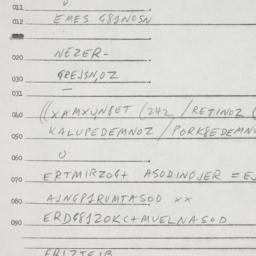 011
012 EMES G81NOSN
020 NEZER-
030 GREJSN,OZ
031 —
040 ((XAMXUNBET (242 / RETINOZ (
KALUPEDEMNOZ / PORK8EDEMN
050
060 U
070 ERTMIRZOG+ ASODINOJER = E
080 AJNGP1RUMTASOD XX
090 ERDG81ZOKC+MUELNASOD